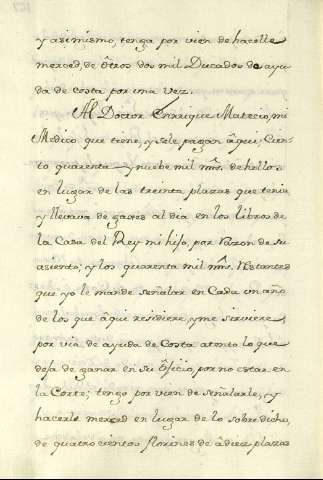 y asimismo, tenga por vien de hacelle
merced, de ôtros dos mil Ducados de ayu
da de costa por una vez.
Al Doctor Enrrique Matecio, mi
Medico que tiene, y sele pagan âqui; Cien-
to quarenta y nuebe mil mrs. de hellos
en lugar de las treinta plazas que tenia
y llevava de gages al dia en los libros de
la Casa del Rey mi hijo, por Razon de su
asiento; y los quarenta mil mrs. Restantes
que yo le mande señalar en Cada un año
de los que âqui residiere, y me sirviere
por via de ayuda de Costa atento lo que
deja de ganar en su ôficio, por no estar en
la Corte; tengo por vien de señalarle, y
hacerle merced en lugar de lo sobre dicho,
de quatrocientos florines de âdiez plazas